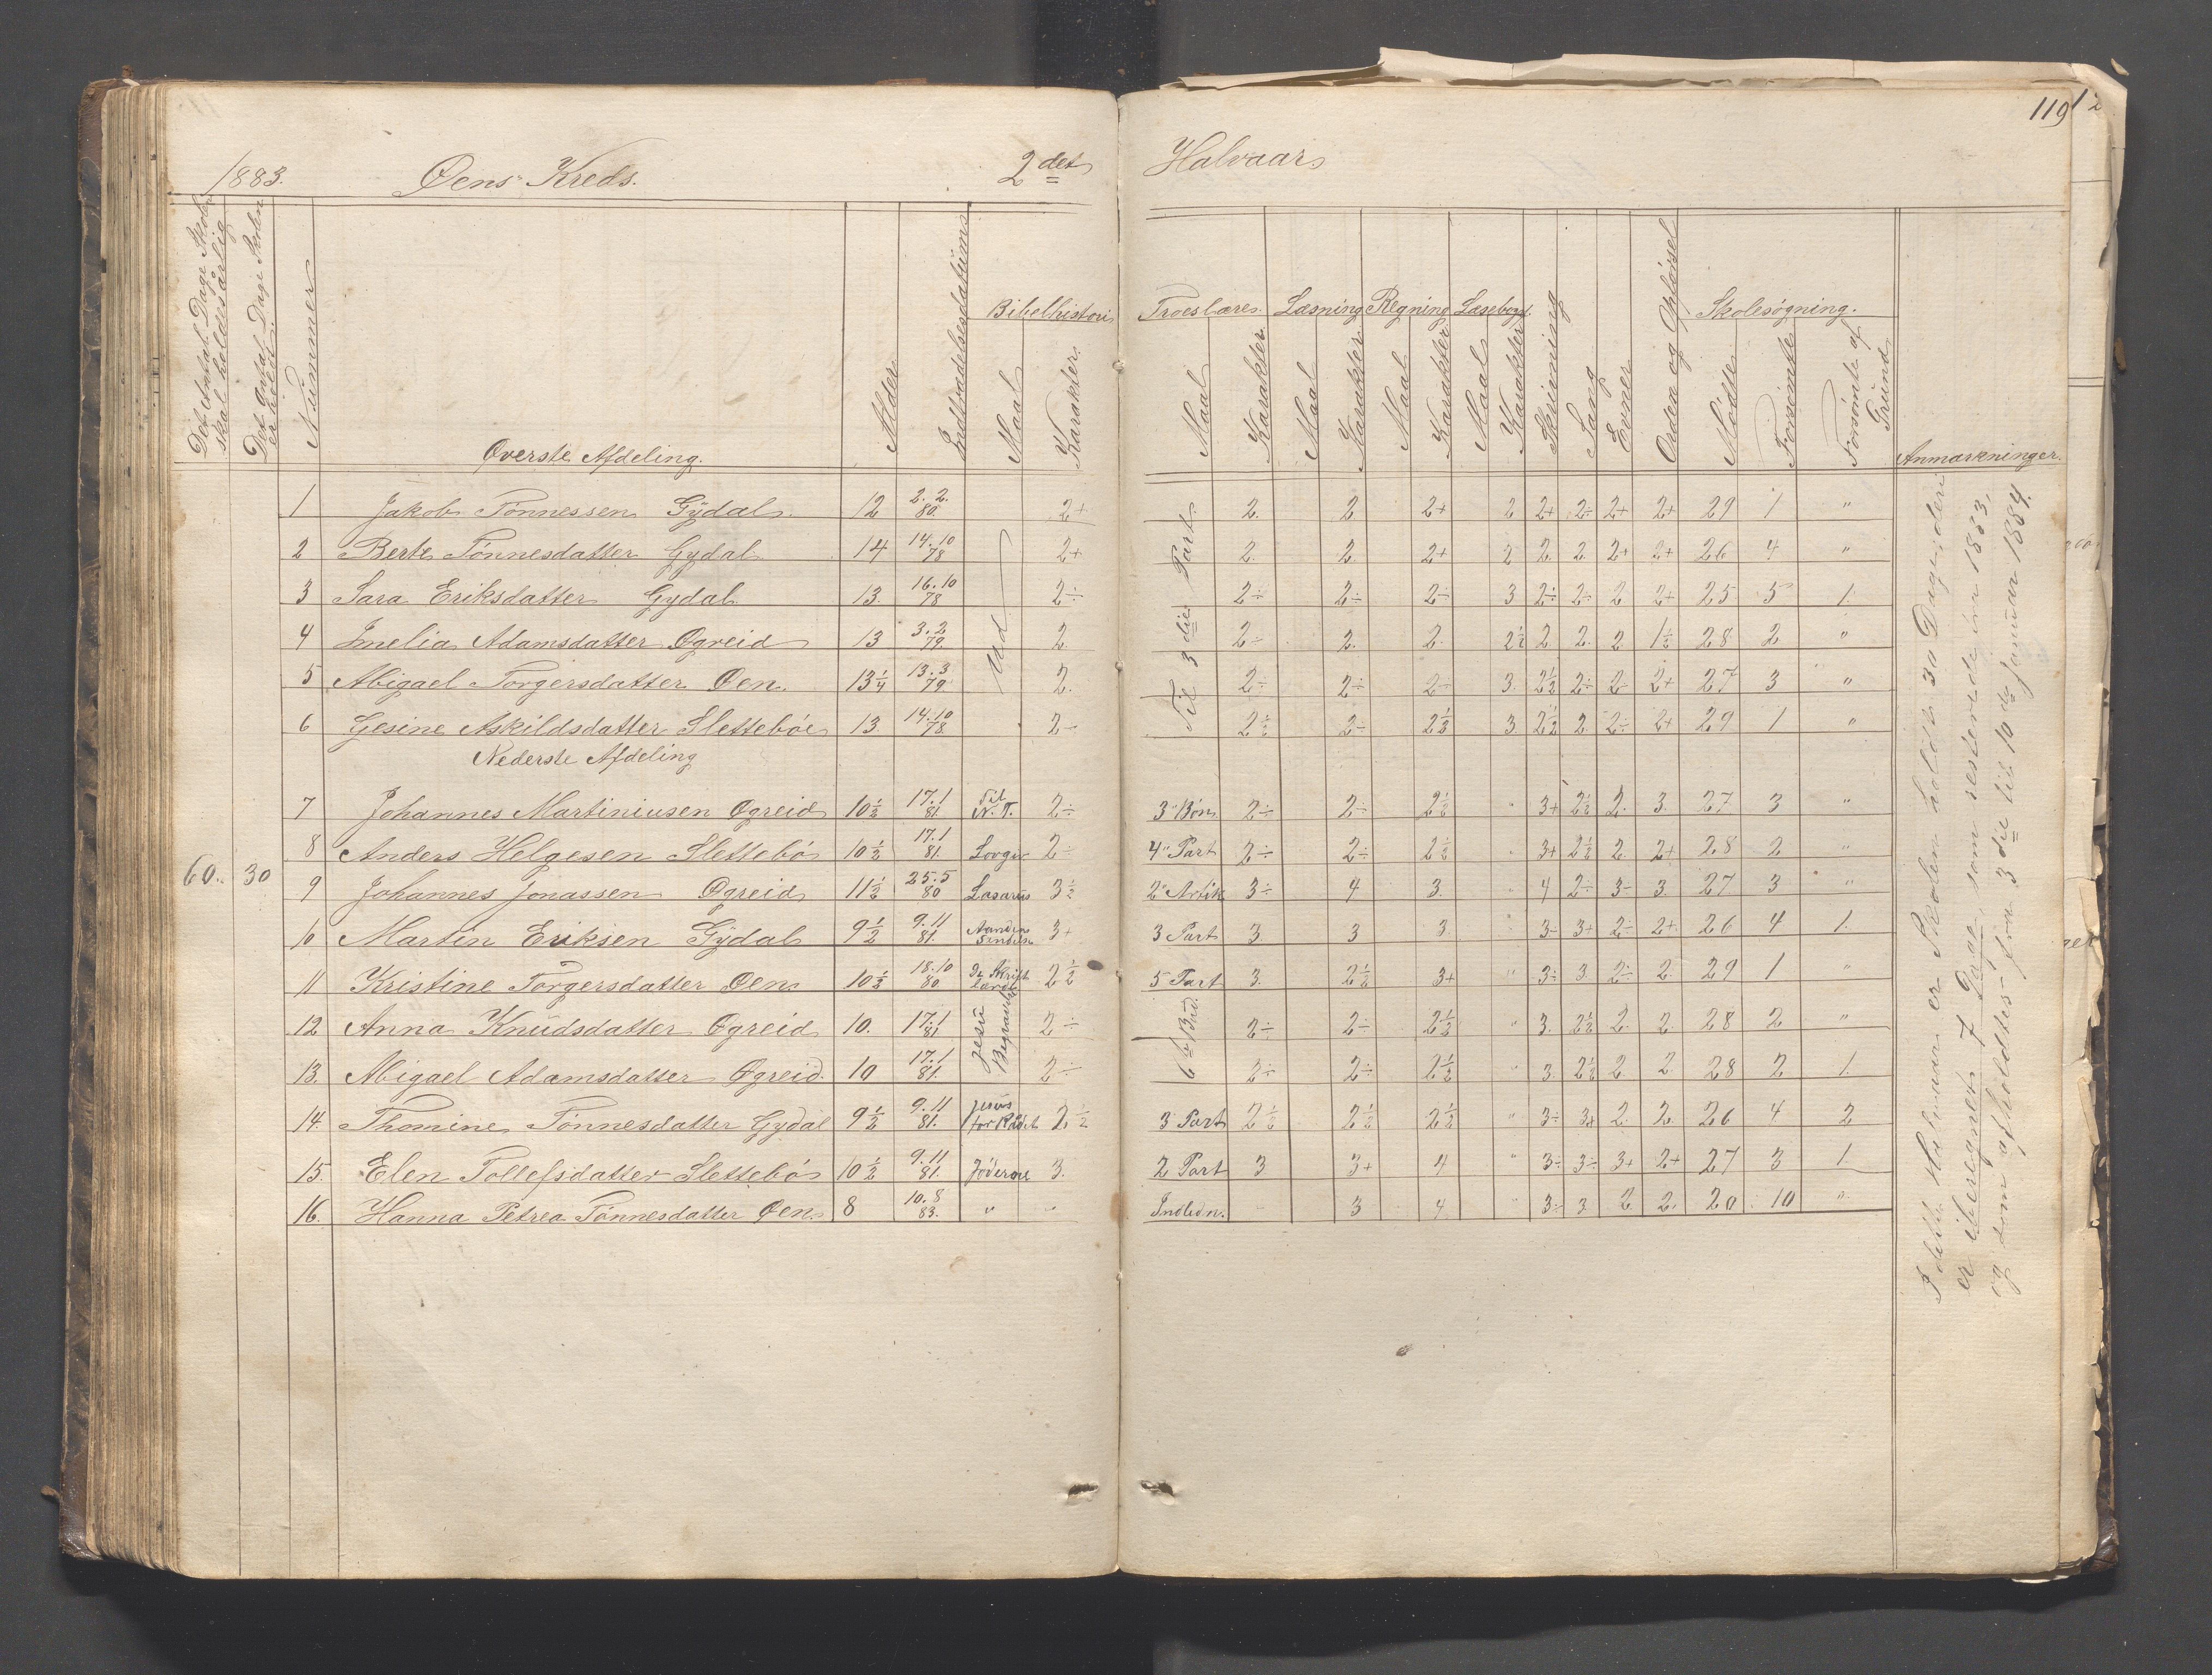 119
1883. Øens Kreds. 2det Halvaar
Det Antal Dage Skolen skal holdes årlig
Det Antal Dage Skolen er holdt
Nummer
Øverste Afdeling.
Alder
Indtrædelsesdatum
Bibelhistori
Maal
Karakter
Troeslære
Maal
Karakter
Læsning
Maal
Karakter
Regning
Maal
Karakter
Læsebog
Maal
Karakter
Skrivning
Sang
Evner
Orden og Opførsel
Skolesøgning.
Mødte
Forsømte
Forsømte af Grund
Anmærkninger.
1 Jakob Tønnessen Gydal. 12 2.2. 80. 2+ 2. 2 2+ 2 2+ 2÷ 2+ 2+ 29 1 "
2 Berte Tønnesdatter Gydal 14 14.10 78 Ud 2+ Til 3die Part 2. 2. 2+ 2 2. 2. 2+ 2+ 26 4 "
3 Sara Eriksdatter Gydal 13. 16.10 78 2÷ 2÷ 2÷ 2÷ 3 2÷ 2÷ 2 2+ 25 5 1.
4 Imelia Adamsdatter Øgreid 13 3.2 79. 2. 2÷ 2. 2. 2½ 2. 2. 2 1½ 28 2 "
5 Abigael Torgersdatter Øen. 13¼ 13.3 79. 2. 2÷ 2÷ 2÷ 3. 2½ 2÷ 2÷ 2+ 27 3 "
6 Gesine Askildsdatter Slettebøe 13. 14.10 78. 2÷ 2½ 2÷ 2½ 3. 2½ 2 2÷ 2+ 29 1 "
Nederste Afdeling
7 Johannes Martiniusen Øgreid 10½ 17.1 81. Til N. T. 2÷ 3" Bøn. 2÷ 2÷ 2½ " 3+ 2½ 2. 3. 27 3 "
8 Anders Helgesen Slettebø 10½ 17.1 81. 2÷ 4" Part 2÷ 2÷ 2½ " 3+ 2½ 2. 2+ 28 2 "
60. 30
9 Johannes Jonassen Øgreid 11½ 25.5 80 Lasarus 3½ 2" Artik 3÷ 4 3. " 4 2÷ 3÷ 3. 27 3 "
10 Martin Eriksen Gydal 9½ 9.11 81. 3+ 3 Part 3. 3 3 3÷ 3+ 2÷ 2+ 26 4 1.
11 Kristine Torgersdatter Øen. 10½ 18.10 80 2½ 5 Part 3. 2½ 3+ " 3÷ 3. 2÷ 2. 29 1 "
12 Anna Knudsdatter Øgreid 10. 17.1 81 Jesu Begravelse 2÷ 6te Bud. 2÷ 2÷ 2½ " 3. 2½ 2. 2. 28 2 "
13. Abigael Adamsdatter Øgreid. 10 17.1 81. 2÷ 2÷ 2÷ 2½ " 3. 2½ 2. 2. 28 2 1.
14. Thomine Tønnesdatter Gydal 9½ 9.11 81. Jesus for Rådet 2½ 3 Part 2½ 2½ 2½ " 3÷ 3+ 2. 2. 26 4 2
15. Elen Tollefsdatter Slettebø 10½ 9.11 81. Jøderne 3. 2 Part 3 3+ 4 " 3÷ 3÷ 3+ 2+ 27 3 1.
16. Hanna Petrea Tønnesdatter Øen. 8 10.8 83. " " Indledn. - 3 4 " 3÷ 3. 2 2. 20 10 "
I dette Halvaar er Skolen holdt 30 Dage, deri
er iberegnet 7 Dage, som resterede fra 1883,
og som afholdtes fra 3die til 10de Januar 1884.